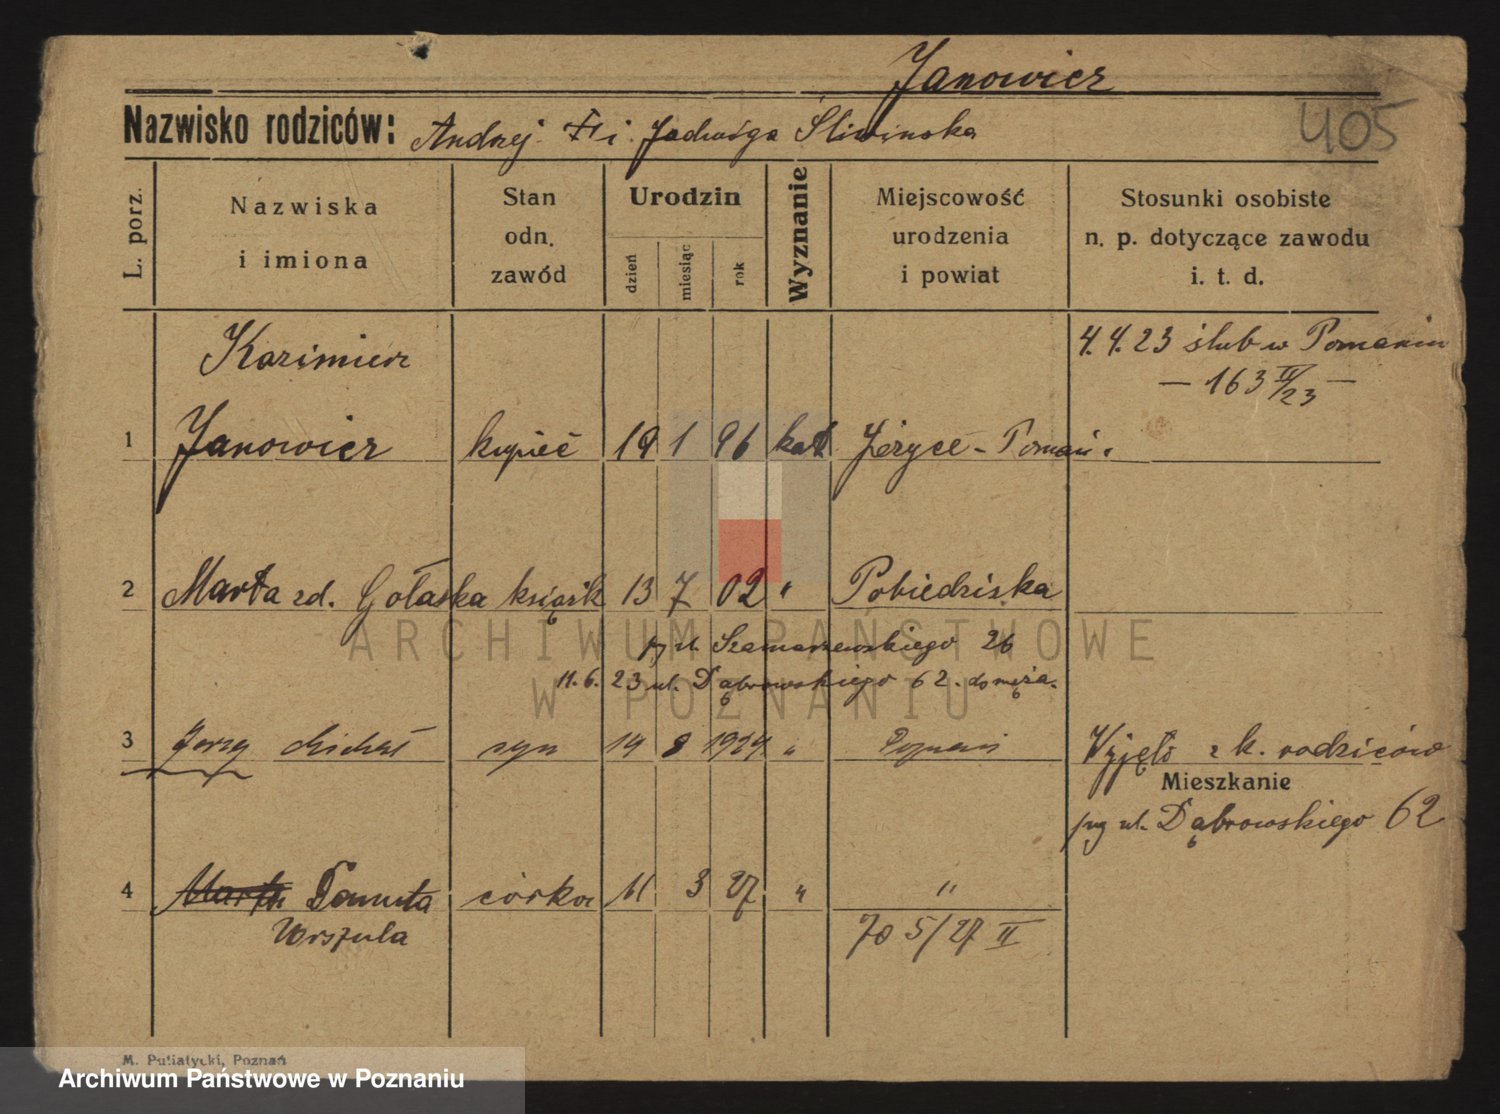 Janowicz
405
Nazwisko rodziców: Andrzej i Jadwiga Śliwińska
L. porz.
Nazwiska
i imiona
Stan
odn.
zawód
Urodzin
dzień
miesiąc
rok
Wyznanie
Miejscowość
urodzenia
i powiat
Stosunki osobiste
n. p. dotyczące zawodu
i. t. d.
Kazimierz
4.4.23 ślub w Poznaniu
— 163 II/23 —
1 Janowicz kupiec 19 1 96 kat Jeżyce - Poznań
2 Marta zd. Gołaska książk 13 7 02 " Pobiedziska
ul. Szamarzewskiego 26
11.6.23 ul. Dąbrowskiego 62. do męża.
3 Jerzy Michał syn 14 8 1924 " Poznań Wyjęto z k. rodziców
Mieszkanie
ul. Dąbrowskiego 62
4 Marta Danuta córka 11 3 27 " "
Urszula
70 5/27 II
M. Putiatycki, Poznań
ARCHIWUM PAŃSTWOWE
W POZNANIU
Archiwum Państwowe w Poznaniu